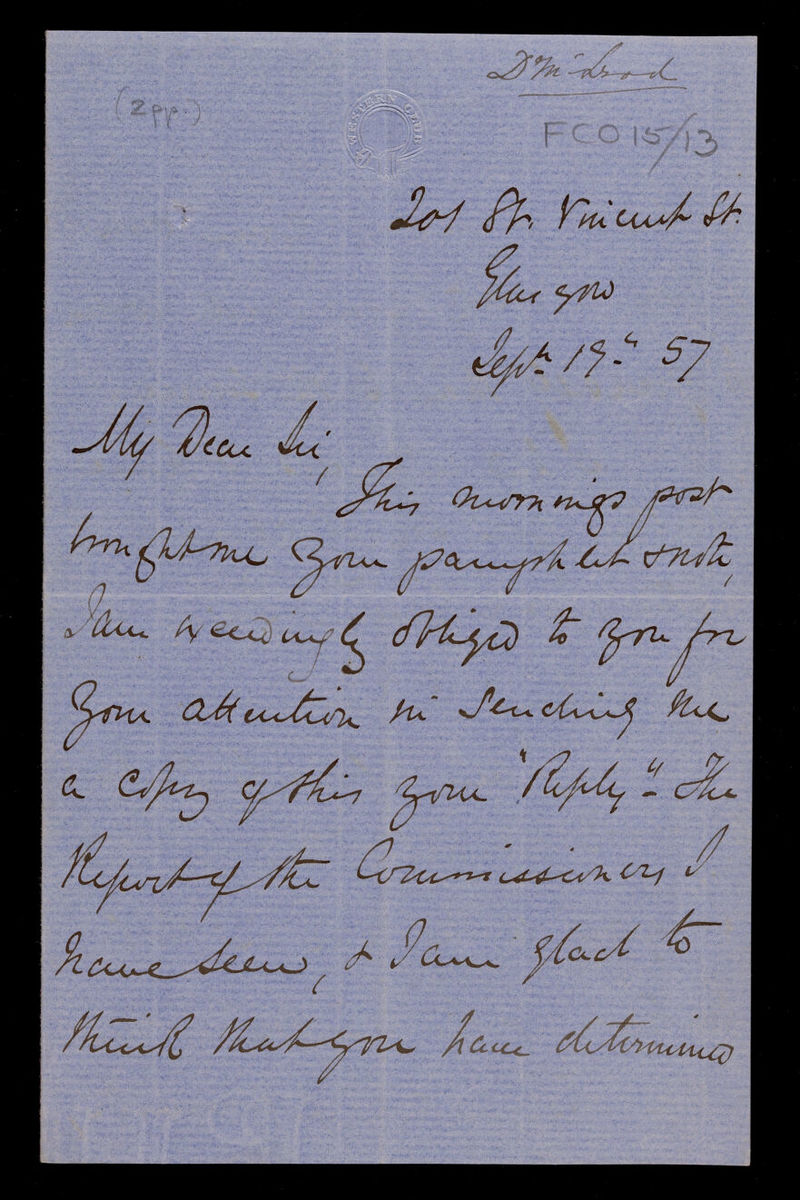 Dr McLeod
(2pp.)
WESTERN CLUB
FCO15/13
201 St. Vincent St.
Glasgow
Septr. 19th 57
My Dear Sir,
This mornings post
brought me your pamphlet & note,
I am exceedingly obliged to you for
your attention in sending me
a copy of this your "Reply" - The
Report of the Commissioners I
have seen, & I am glad to
think that you have determined